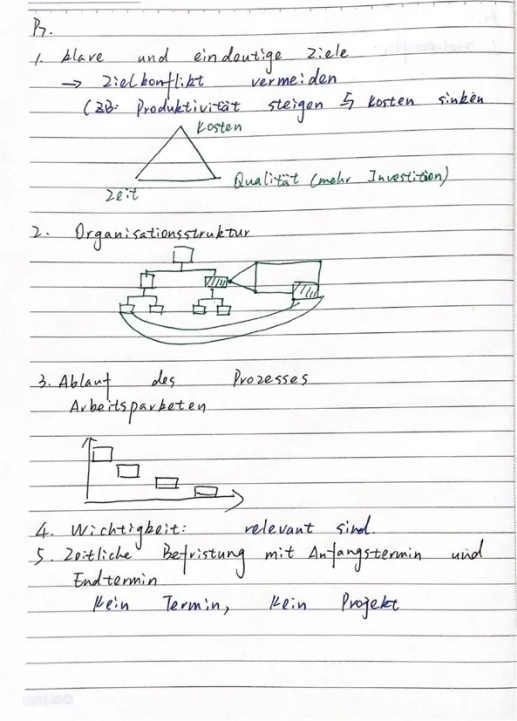 P.
1. klare und eindeutige Ziele
→ Zielkonflikt vermeiden
(ZB: Produktivität steigen ↯ Kosten sinken
Kosten
Zeit
Qualität (mehr Investition)
2. Organisationsstruktur
3. Ablauf des Prozesses
Arbeitsparketen
4. Wichtigkeit: relevant sind.
5. Zeitliche Befristung mit Anfangstermin und
Endtermin
Kein Termin, Kein Projekt